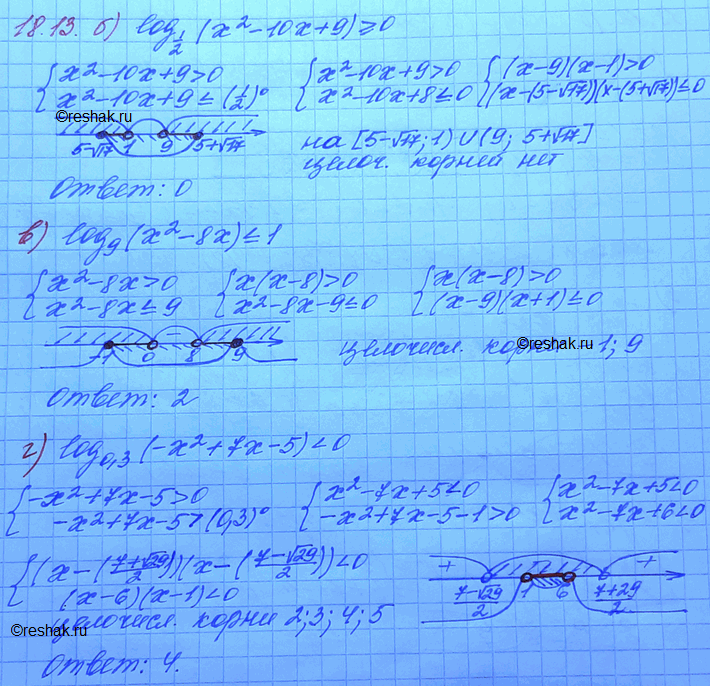 18.13. б) log_{1/2} (x² - 10x + 9) ≥ 0
{ x² - 10x + 9 > 0 { x² - 10x + 9 > 0 { (x - 9)(x - 1) > 0
{ x² - 10x + 9 ≤ (1/2)⁰ { x² - 10x + 8 ≤ 0 { (x - (5 - √17))(x - (5 + √17)) ≤ 0
©reshak.ru
5-√17 1 9 5+√17 на [5-√17; 1) ∪ (9; 5+√17]
целоч. корней нет
Ответ: 0
в) log₉ (x² - 8x) ≤ 1
{ x² - 8x > 0 { x(x - 8) > 0 { x(x - 8) > 0
{ x² - 8x ≤ 9 { x² - 8x - 9 ≤ 0 { (x - 9)(x + 1) ≤ 0
-
-1 0 8 9 целочисл. корни -1; 9
©reshak.ru
Ответ: 2
г) log_{0,3} (-x² + 7x - 5) < 0
{ -x² + 7x - 5 > 0 { x² - 7x + 5 < 0 { x² - 7x + 5 < 0
{ -x² + 7x - 5 > (0,3)⁰ { -x² + 7x - 5 - 1 > 0 { x² - 7x + 6 < 0
{ (x - (7+√29)/2)(x - (7-√29)/2) < 0
{ (x - 6)(x - 1) < 0
+ +
(7-√29)/2 1 6 (7+29)/2
целочисл. корни 2; 3; 4; 5
©reshak.ru
Ответ: 4.